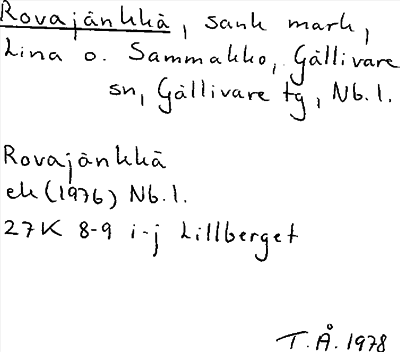 Rovajänkkä, sank mark,
Lina o. Sammakko, Gällivare
sn, Gällivare tg, Nb.l.
Rovajänkkä
ek (1976) Nb.l.
27K 8-9 i-j Lillberget
T.Å. 1978